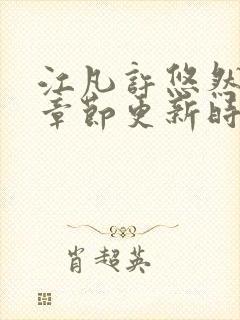 江凡許悠然
章節更新時
肖超英